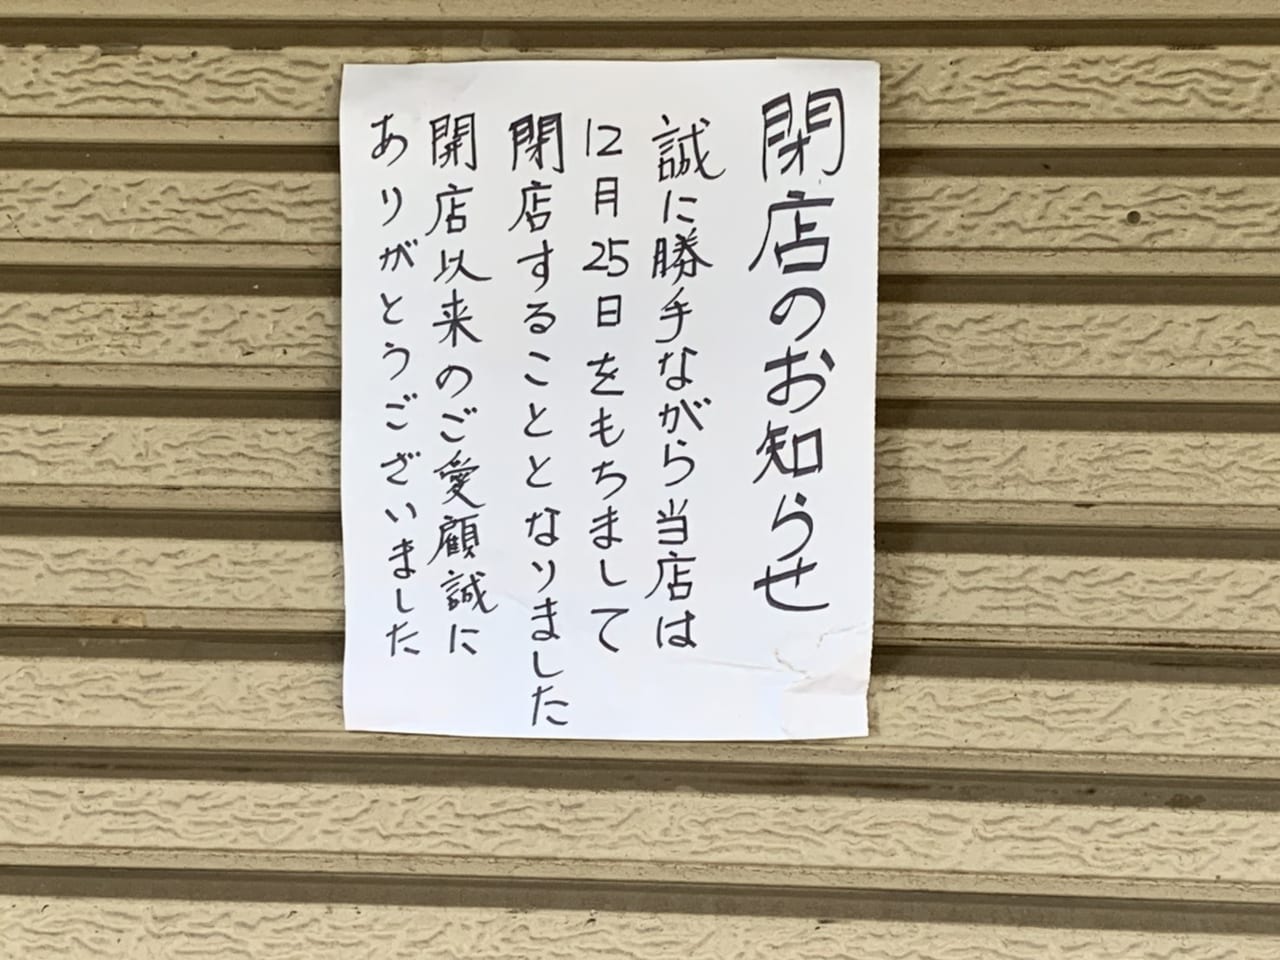 閉店のお知らせ
誠に勝手ながら当店は
12月25日をもちまして
閉店することとなりました
開店以来のご愛顧誠に
ありがとうございました